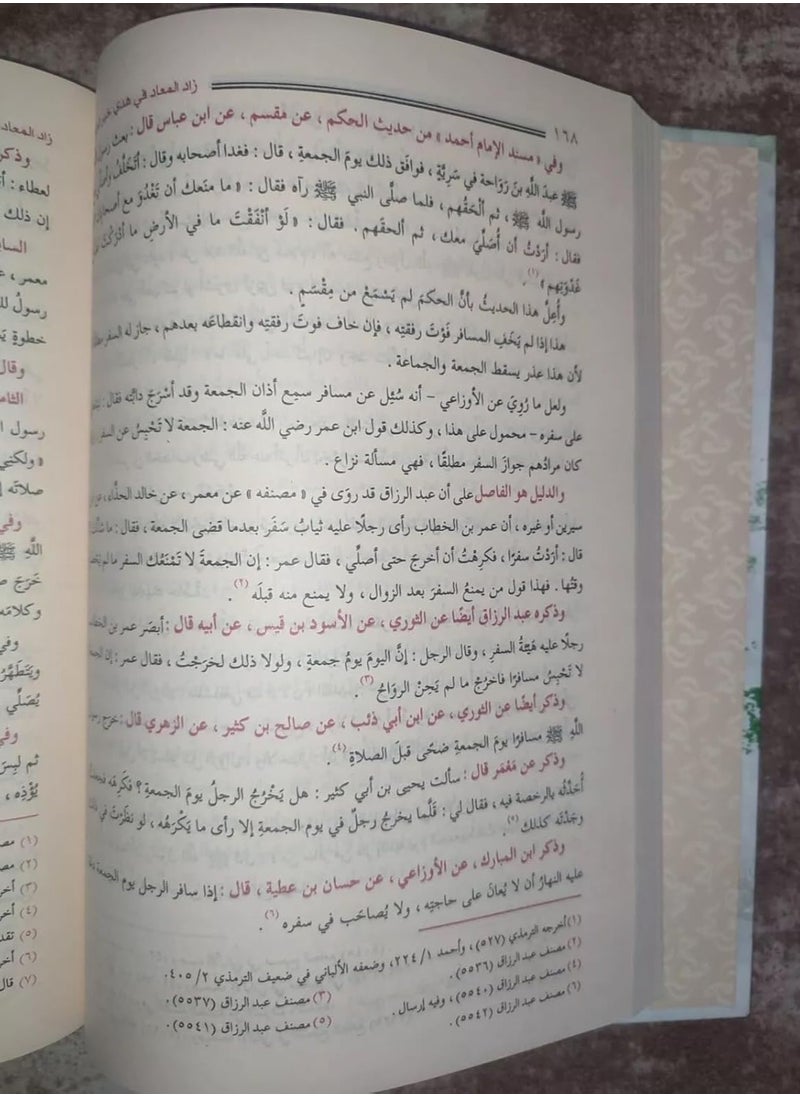 زاد المعاد في هدي خير
١٦٨
وفي « مسند الإمام أحمد » من حديث الحكم ، عن مقسم ، عن ابن عباس قال : بعث رسول
ﷺ عبدَ اللَّهِ بنَ رَوَاحة في سَرِيَّةٍ ، فوافَق ذلك يومَ الجمعةِ ، قال : فغدا أصحابه وقال : أتَخَلَّفُ وأصلي
رسول اللَّه ﷺ ، ثم ألحَقُهم ، فلما صلَّى النبي ﷺ رآه فقال : « ما منَعك أن تَغْدُوَ مع أصحابك
فقال : أرَدْتُ أن أُصَلِّيَ معك ، ثم ألحقَهم . فقال : « لَوْ أنْفَقْتَ ما في الأرضِ ما أدْرَكْتَ
غَدْوَتِهم »(١).
وأُعِلَّ هذا الحديثُ بأنَّ الحكمَ لم يَسْمَعْ من مِقْسَمٍ .
هذا إذا لم يَخَفِ المسافر فَوْتَ رفقتِه ، فإن خاف فوت رفقتِه وانقطاعَه بعدهم ، جاز له السفر
لأن هذا عذر يسقط الجمعة والجماعة .
ولعل ما رُوِيَ عن الأوزاعي – أنه سُئِل عن مسافر سمِع أذان الجمعة وقد أسْرَجَ دابَّته فقال :
على سفره – محمول على هذا ، وكذلك قول ابن عمر رضي اللَّه عنه : الجمعة لا تَحْبِسُ عن السفر
كان مرادُهم جوازَ السفر مطلقًا ، فهي مسألة نزاع .
والدليل هو الفاصل على أن عبد الرزاق قد روَى في « مصنفه » عن معمر ، عن خالد الحذَّاء،
سيرين أو غيره ، أن عمر بن الخطاب رأى رجلًا عليه ثيابُ سَفَر بعدما قضى الجمعة ، فقال :
قال : أرَدْتُ سفرًا ، فكرِهْتُ أن أخرجَ حتى أصلِّي ، فقال عمر : إن الجمعةَ لا تَمْنَعُك السفر ما لم
وقتُها . فهذا قول من يمنعُ السفرَ بعد الزوال ، ولا يمنع منه قبلَه(٢).
وذكره عبد الرزاق أيضًا عن الثوري ، عن الأسود بن قيس ، عن أبيه قال : أبصَر عمر بن الخطاب
رجلًا عليه هَيْئَةُ السفرِ ، وقال الرجل : إنَّ اليومَ يومُ جمعةٍ ، ولولا ذلك لخرَجْتُ ، فقال عمر :
لا تَحْبِسُ مسافرًا فاخرُجْ ما لم يَحِنْ الرواحُ(٣).
وذكر أيضًا عن الثوري ، عن ابن أبي ذئب ، عن صالح بن كثير ، عن الزهري قال : خرَج
اللَّهِ ﷺ مسافرًا يومَ الجمعةِ ضحًى قبلَ الصلاةِ(٤).
وذكر عن مَعْمَر قال : سألت يحيى بن أبي كثير : هل يَخْرُجُ الرجلُ يومَ الجمعةِ ؟ فكَرِهَه
أُحَدِّثُه بالرخصة فيه ، فقال لي : قَلَّما يخرجُ رجلٌ في يوم الجمعةِ إلا رأى ما يَكْرَهُه ، لو نظَرْتَ في
وجَدْتَه كذلك(٥).
وذكر ابن المبارك ، عن الأوزاعي ، عن حسان بن عطية ، قال : إذا سافر الرجل يوم الجمعةِ
عليه النهارُ أن لا يُعانَ على حاجتِه ، ولا يُصاحَب في سفرِه(٦).
(١) أخرجه الترمذي (٥٢٧) ، وأحمد ٢٢٤/١، وضعفه الألباني في ضعيف الترمذي ٤٠٥/٢.
(٢) مصنف عبد الرزاق (٥٥٣٦).
(٣) مصنف عبد الرزاق (٥٥٣٧).
(٤) مصنف عبد الرزاق (٥٥٤٠) ، وفيه إرسال .
(٥) مصنف عبد الرزاق (٥٥٤١).
(٦) مصنف عبد الرزاق (٥٥٤٢).
زاد المعاد
وذكر
لعطاء :
إن ذلك
معمر ،
رسولُ
خطوةٍ
وقال
رسول
« ولكني
صلاته
وفي
اللَّهِ ﷺ
خرَج
وكلامَه
وفي
ويَتَطَهَّرُ
يُصَلِّي
وفي
ثم ليسَ
يُؤْذِه ،
(١)
(٢)
(٣)
(٤)
(٥)
(٦)
(٧) قال